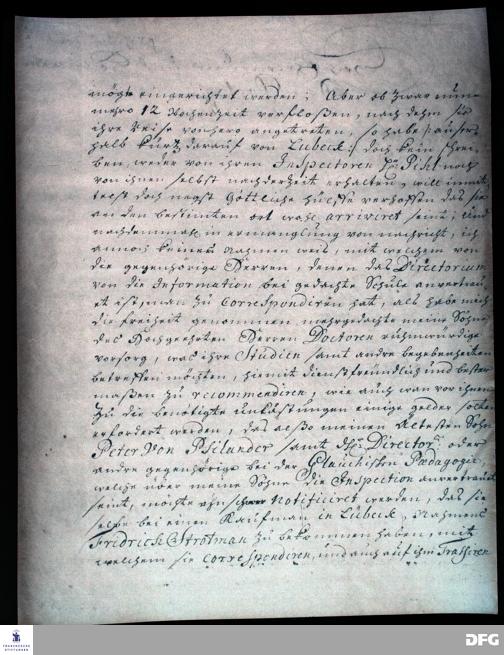 möge eingerichtet werden; Aber ob zwar nun
mehro 12 Wochenzeit verfloßen, nach dehm sie
ihre Reise von hero angetreten, so habe
halb kürtz darauf von Lübeck: doch kein schrei-
ben, weder von ihren Inspectoren Hr. Pihl noch
von ihnen selbst nach der zeit erhalten, will
doch negst Göttliche hülffe verhoffen das sie
an den bestimten ort arriviret seint; Und
nachdemmahl in ermanglung von nachricht, ich
annoch keinen Nahmen weis, mit welchem von
die gegenhörige Herren, denen das Directorium
von die Information bei gedachte Schule anvertrau-
et ist, man zu Correspondiren hat, als habe mich
die freiheit genommen, mehrgedachte meine Söhne
des Hochgeehrten Herren Doctoren rühmwürdige
vorsorg, was ihre Studien samt andre begebenheiten
betreffen möchten, hiemit dienstfreundlich und bester
maßen zu recommendiren, wie auch wan vor ihnen
zu die benötigte unkostungen einige gelder solten
erfordert werden, das alßo meinen ältesten Sohn
Peter Von Psilander samt Director oder
andre gegenhörige bei der Glauchischen Pædagogie,
welche über meine Söhne die Inspection anvertrauet
seint, möchte notificiret werden, das sie
selbe bei einen Kaufman in Lübeck, Nahmens
Fridrich Strotman zu bekommen haben, mit
welchem sie Correspondiren, und auch auf ihm Trassiren
FRANCKESCHE
STIFTUNGEN
DFG